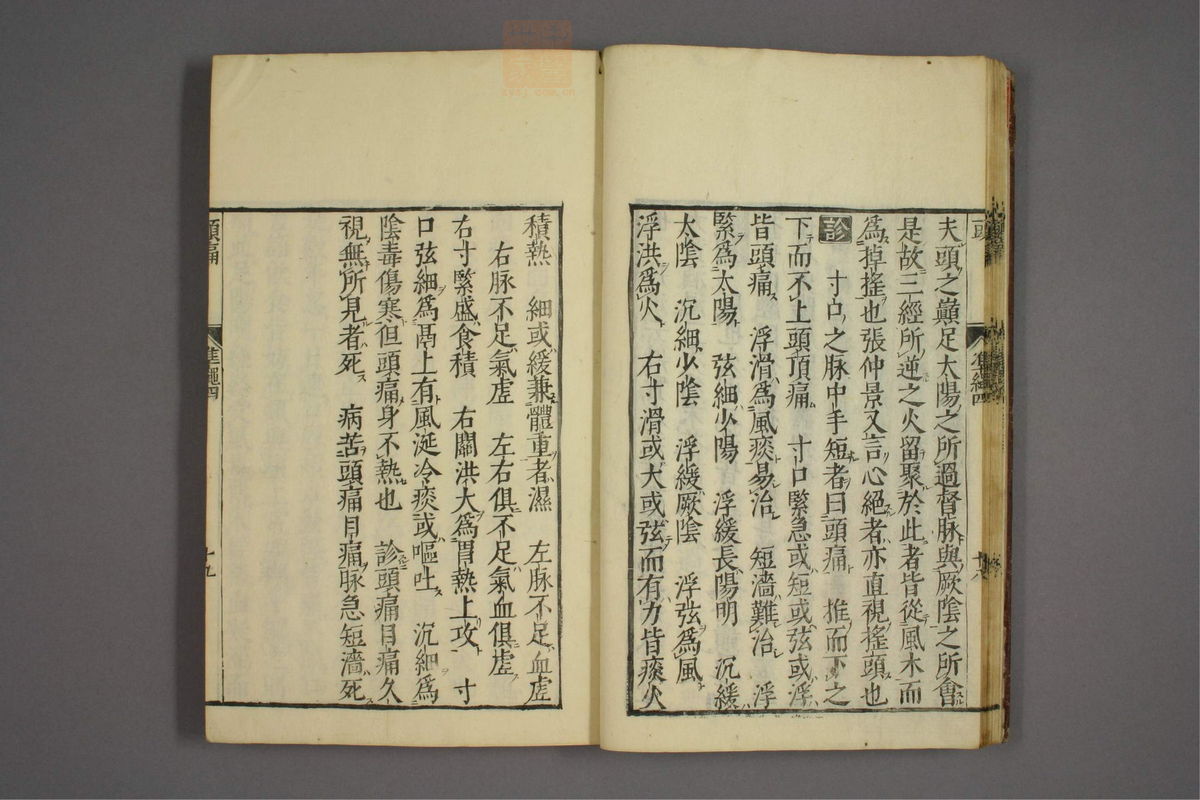 夫頭之巓足太陽之所過督脉與厥陰之所會
是故三經所逆之火留聚於此者皆從風木而
爲掉搖也張仲景又言心絕者亦直視搖頭也
診 寸口之脉中手短者曰頭痛 推而下之
下而不上頭頂痛 寸口緊急或短或弦或浮
皆頭痛 浮滑爲風痰易治 短濇難治 浮
緊爲太陽 弦細少陽 浮緩長陽明 沉緩
太陰 沉細少陰 浮緩厥陰 浮弦爲風
浮洪爲火 右寸滑或大或弦而有力皆痰火
積熱 細或緩兼體重者濕 左脉不足血虛
右脉不足氣虛 左右俱不足氣血俱虛
右寸緊盛食積 右關洪大爲胃熱上攻 寸
口弦細爲鬲上有風涎冷痰或嘔吐 沉細爲
陰毒傷寒但頭痛身不熱也 診頭痛目痛久
視無所見者死 病苦頭痛目痛脉急短濇死
頭痛
準繩四
十九